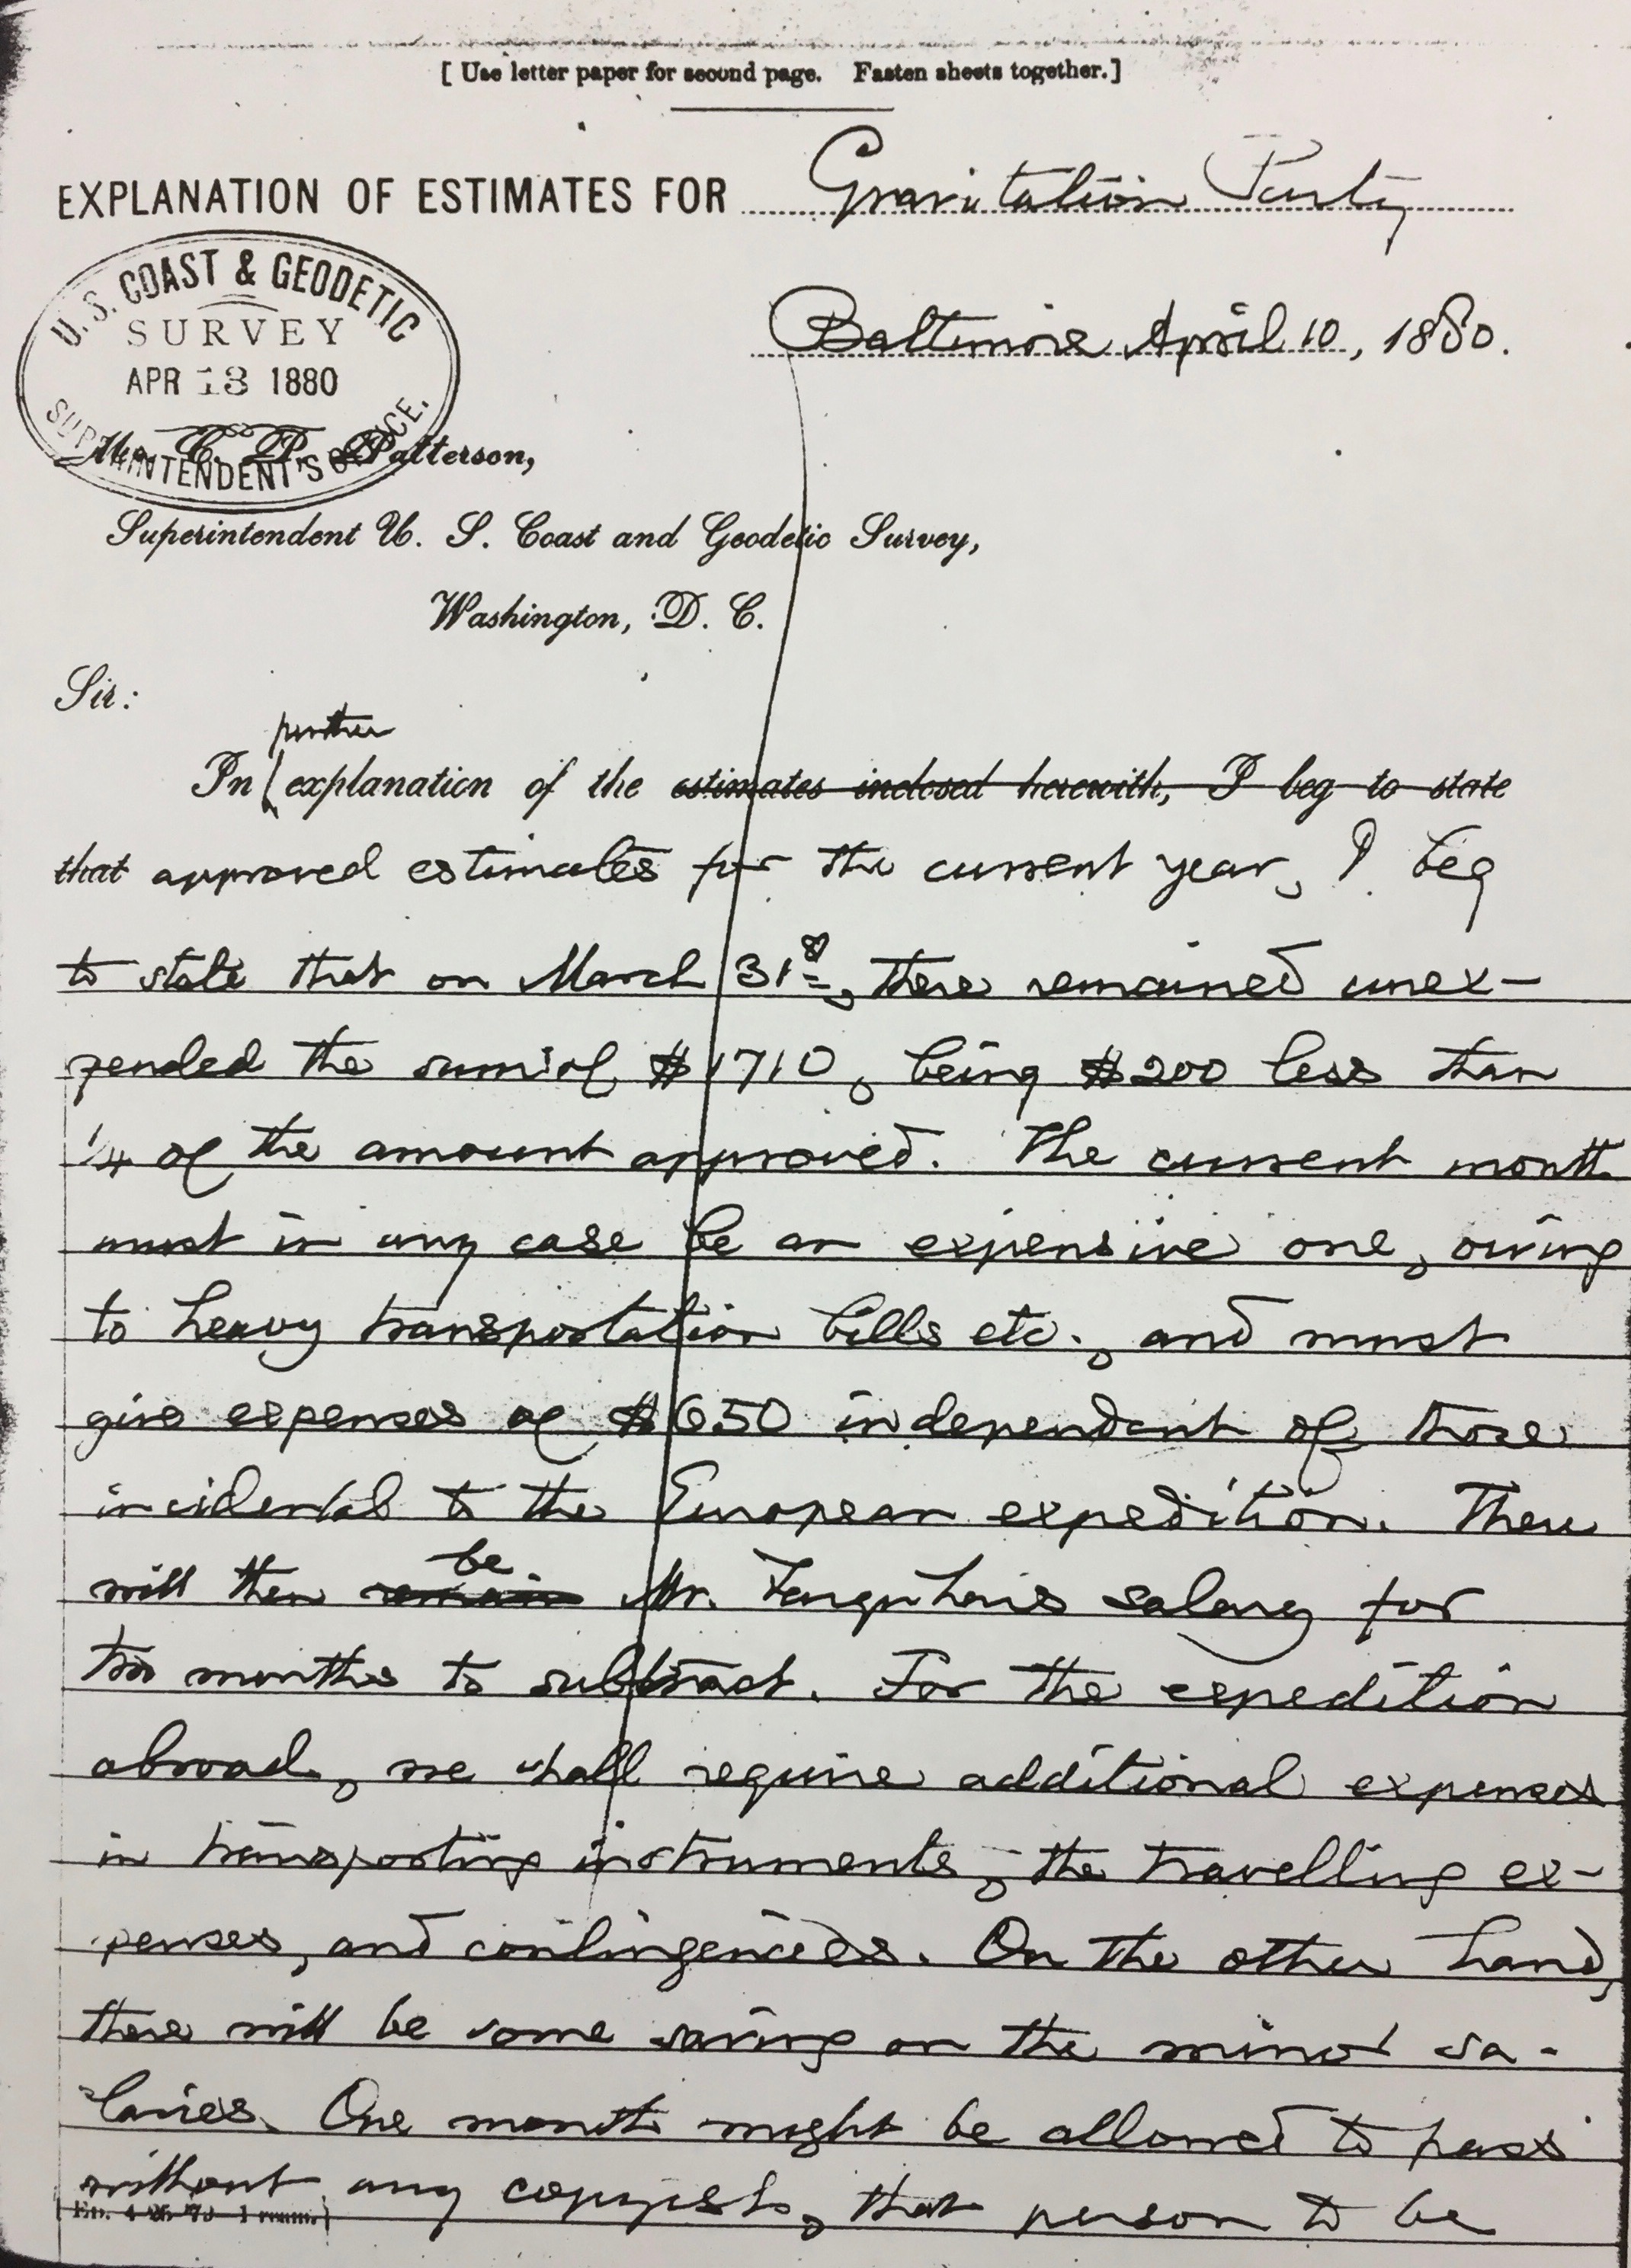 [ Use letter paper for second page. Fasten sheets together.]
EXPLANATION OF ESTIMATES FOR Gravitation Party
U.S. COAST & GEODETIC
SURVEY
APR 13 1880
SUPERINTENDENT'S OFFICE.
Baltimore April 10, 1880.
Mr. C. P. Patterson,
Superintendent U. S. Coast and Geodetic Survey,
Washington, D. C.
Sir:
further
In explanation of the estimates inclosed herewith, I beg to state
that approved estimates for the current year, I beg
to state that on March 31st, there remained unex-
pended the sum of $1710, being $200 less than
1/4 of the amount approved. The current month
must in any case be an expensive one, owing
to heavy transportation bills etc., and must
give expenses of $650 independent of those
incidental to the European expedition. There
be
will then remain Mr. Farquhar's salary for
two months to subtract. For the expedition
abroad, we shall require additional expenses
in transporting instruments, the travelling ex-
penses, and contingencies. On the other hand,
there will be some saving on the minor sa-
laries. One month might be allowed to pass
without any copyist, that person to be